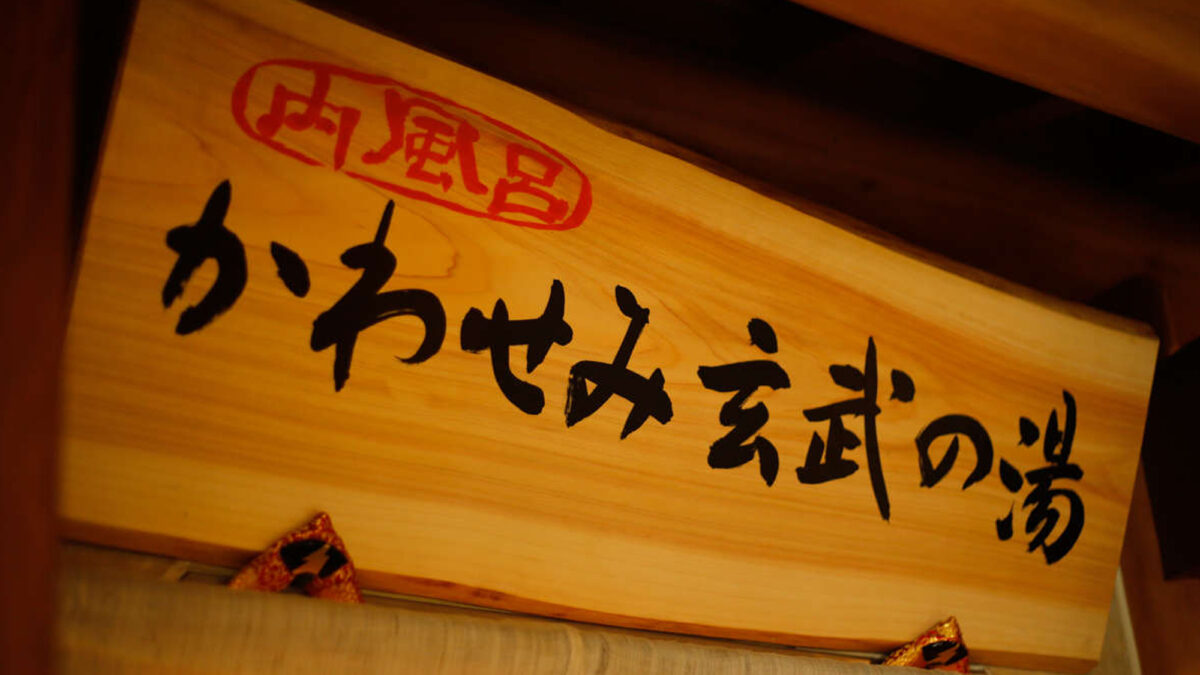 内風呂
かわせみ玄武の湯